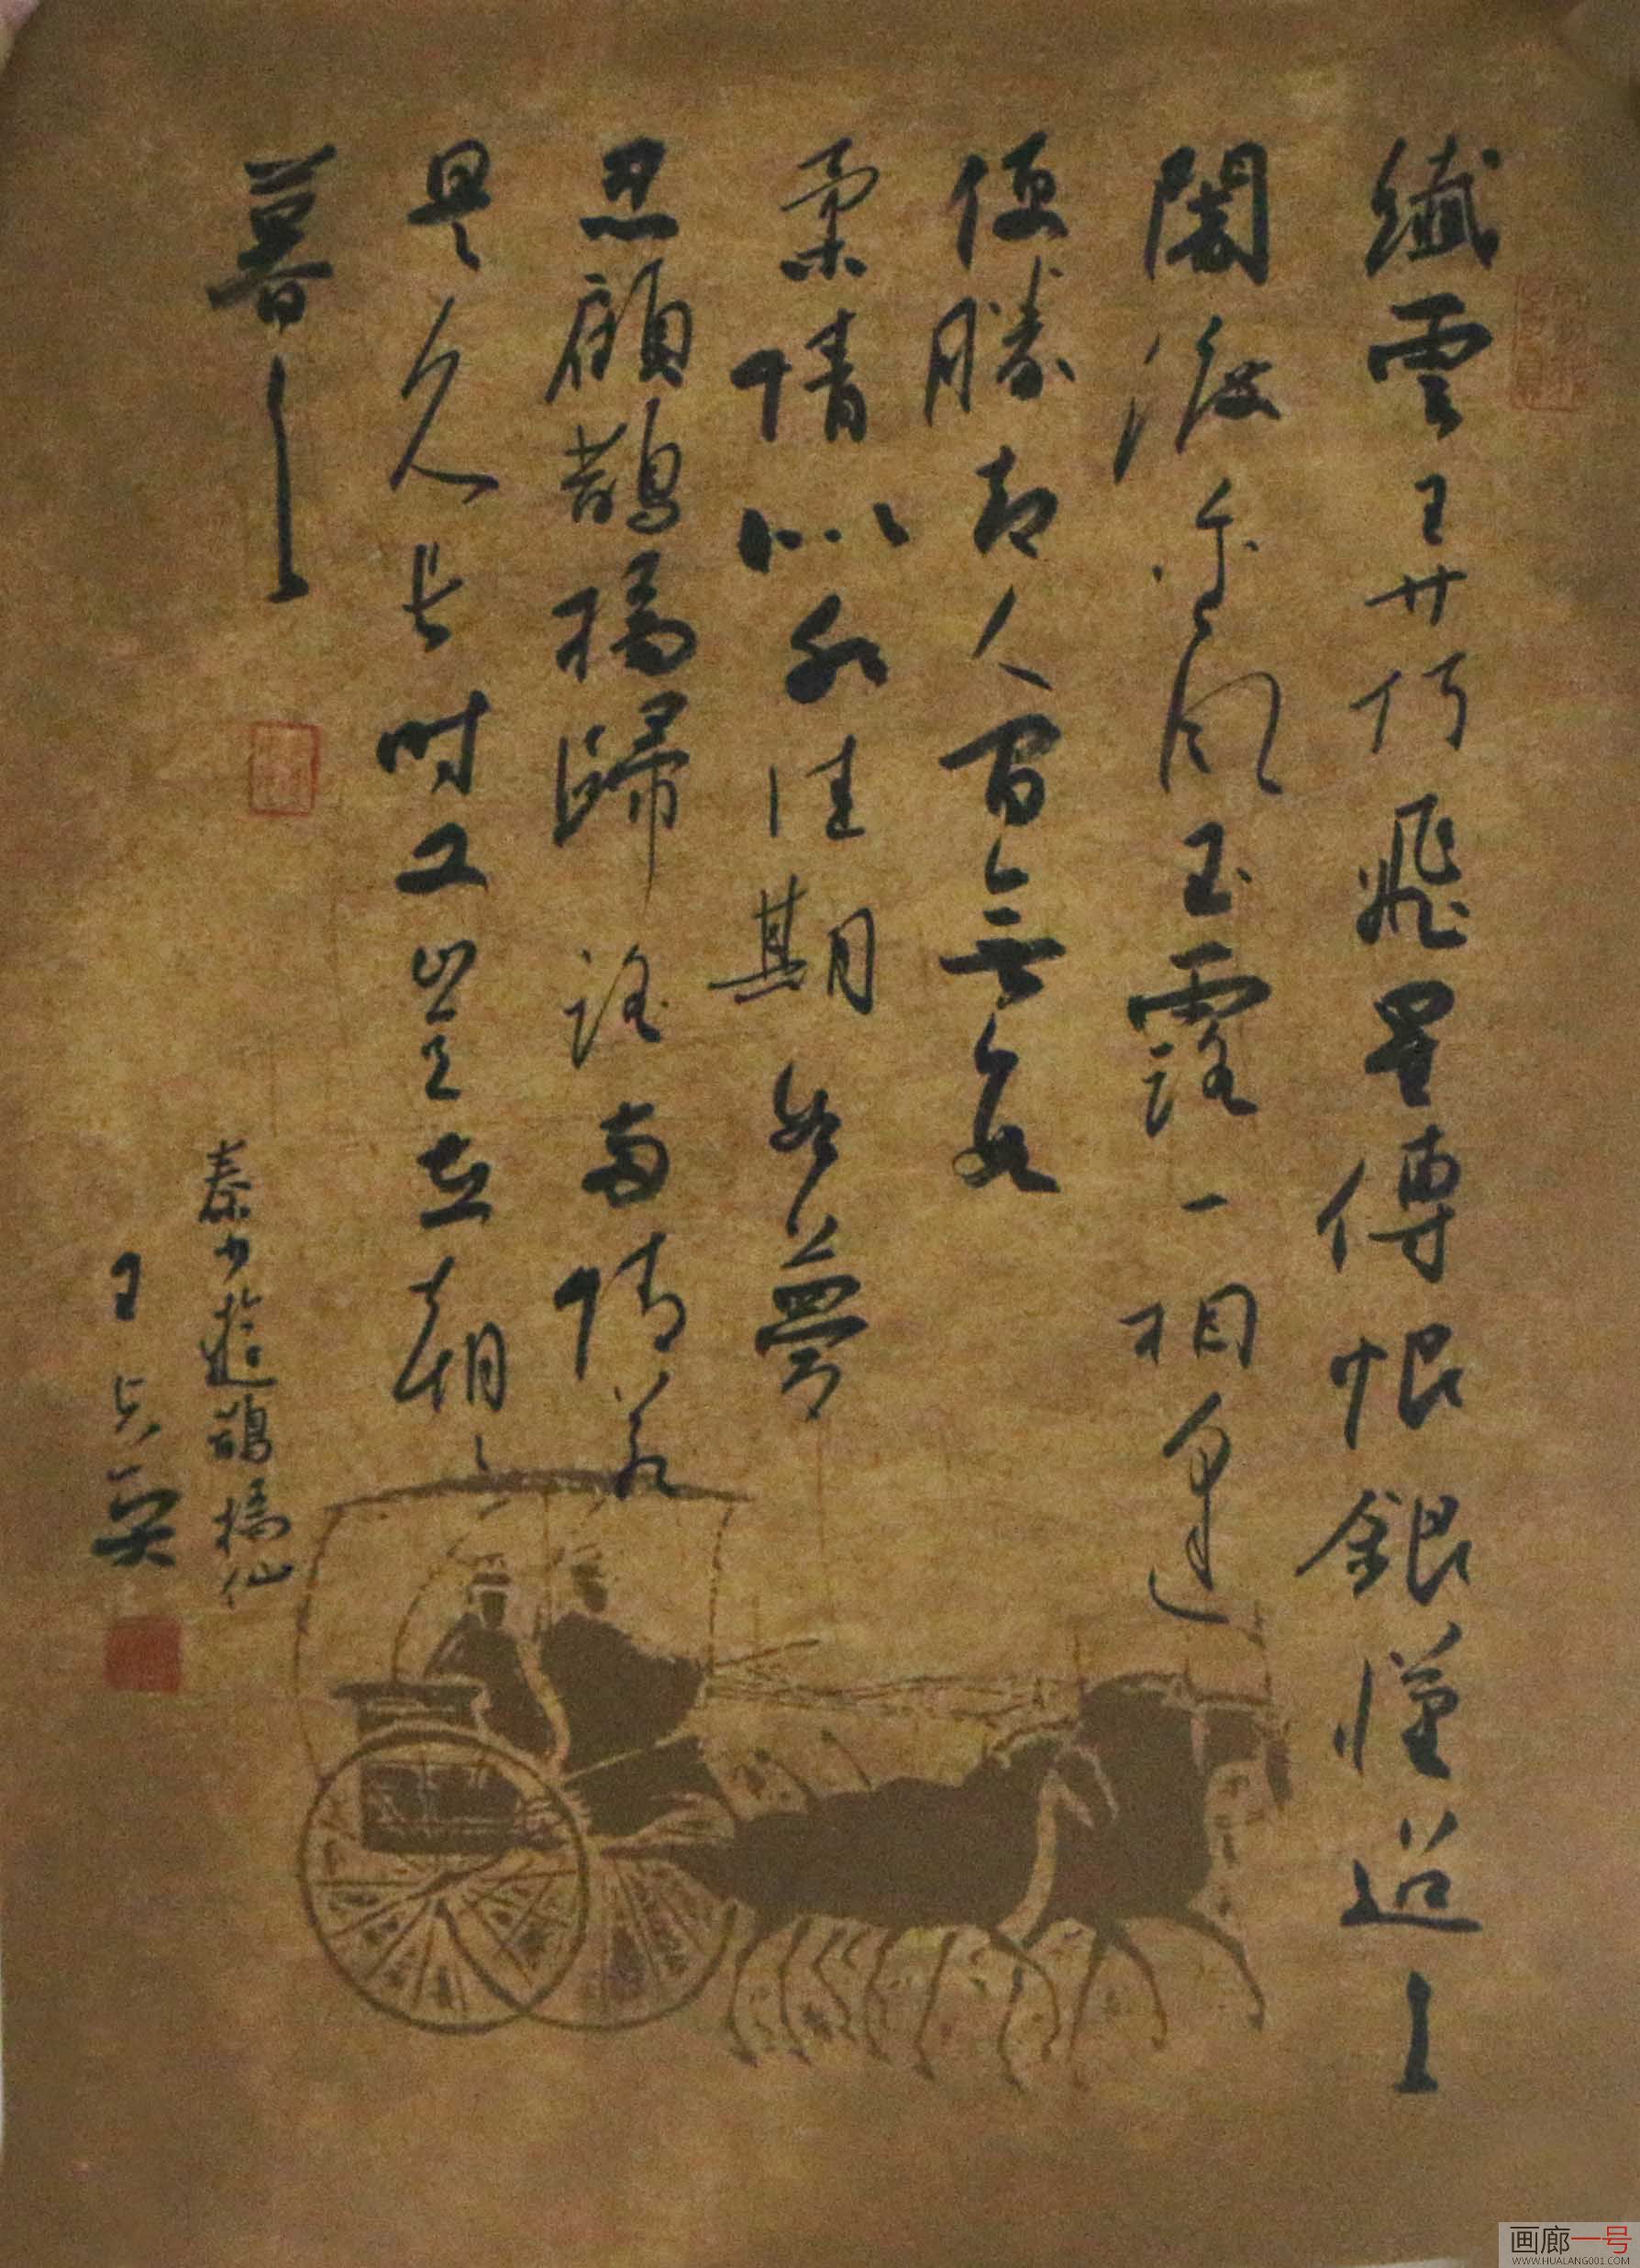 纖雲弄巧飛星傳恨銀漢迢〻
闇渡金風玉露一相逢
便勝却人間無數
柔情似水佳期如夢
忍顧鵲橋歸路兩情若
是久長時又豈在朝〻
暮〻
秦少游鵲橋仙
王
画廊一号
WWW.HUALANG001.COM